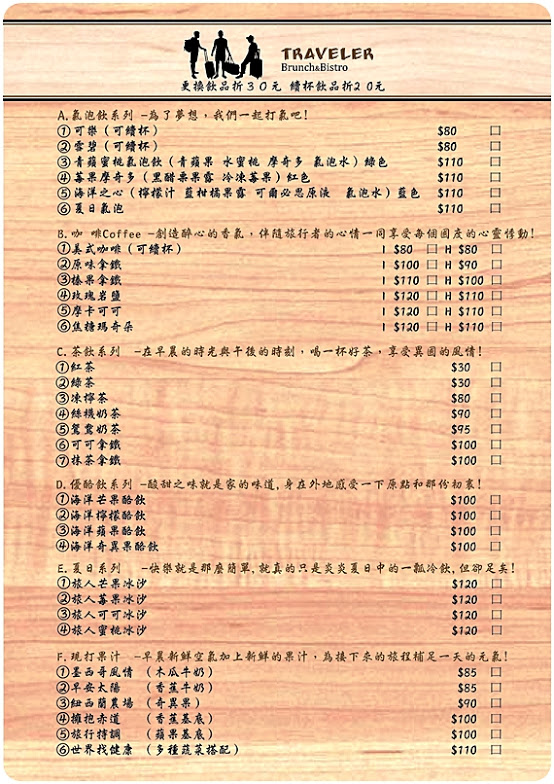 TRAVELER
Brunch&Bistro
更換飲品折30元 續杯飲品折20元
A.氣泡飲系列 -為了夢想，我們一起打氣吧!
①可樂(可續杯) $80 □
②雪碧(可續杯) $80 □
③青蘋蜜桃氣泡飲(青蘋果 水蜜桃 摩奇多 氣泡水)綠色 $110 □
④莓果摩奇多(黑醋栗果露 冷凍莓果)紅色 $110 □
⑤海洋之心(檸檬汁 藍柑橘果露 可爾必思原液 氣泡水)藍色 $110 □
⑥夏日氣泡 $110 □
B.咖 啡Coffee -創造醉心的香氣，伴隨旅行者的心情一同享受每個國度的心靈悸動!
①美式咖啡(可續杯) I $80 □ H $80 □
②原味拿鐵 I $100 □ H $90 □
③榛果拿鐵 I $110 □ H $100 □
④玫瑰岩鹽 I $120 □ H $110 □
⑤摩卡可可 I $120 □ H $110 □
⑥焦糖瑪奇朵 I $120 □ H $110 □
C.茶飲系列 -在早晨的時光與午後的時刻，喝一杯好茶，享受異國的風情!
①紅茶 $30 □
②綠茶 $30 □
③凍檸茶 $80 □
④絲襪奶茶 $90 □
⑤鴛鴦奶茶 $95 □
⑥可可拿鐵 $100 □
⑦抹茶拿鐵 $100 □
D.優酪飲系列 -酸甜之味就是家的味道,身在外地感受一下原點和那份初衷!
①海洋芒果酪飲 $100 □
②海洋檸檬酪飲 $100 □
③海洋蘋果酪飲 $100 □
④海洋奇異果酪飲 $100 □
E.夏日系列 -快樂就是那麼簡單,就真的只是炎炎夏日中的一瓢冷飲,但卻足矣!
①旅人芒果冰沙 $120 □
②旅人莓果冰沙 $120 □
③旅人可可冰沙 $120 □
④旅人蜜桃冰沙 $120 □
F.現打果汁 -早晨新鮮空氣加上新鮮的果汁，為接下來的旅程補足一天的元氣!
①墨西哥風情 (木瓜牛奶) $85 □
②早安太陽 (香蕉牛奶) $85 □
③紐西蘭農場 (奇異果) $90 □
④擁抱赤道 (香蕉基底) $100 □
⑤旅行特調 (蘋果基底) $100 □
⑥世界找健康 (多種蔬菜搭配) $110 □